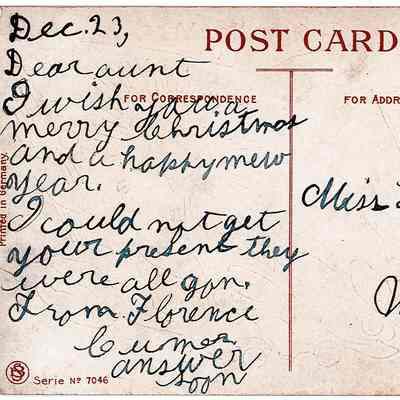 Dec. 23,
POST CARD
Dear aunt
FOR CORRESPONDENCE
FOR ADDR
I wish you a
merry Christmas
and a happy mew
year.
Printed in Germany
Miss
I could not get
your present they
were all gon.
From Florence
answer
soon
Serie Nº 7046